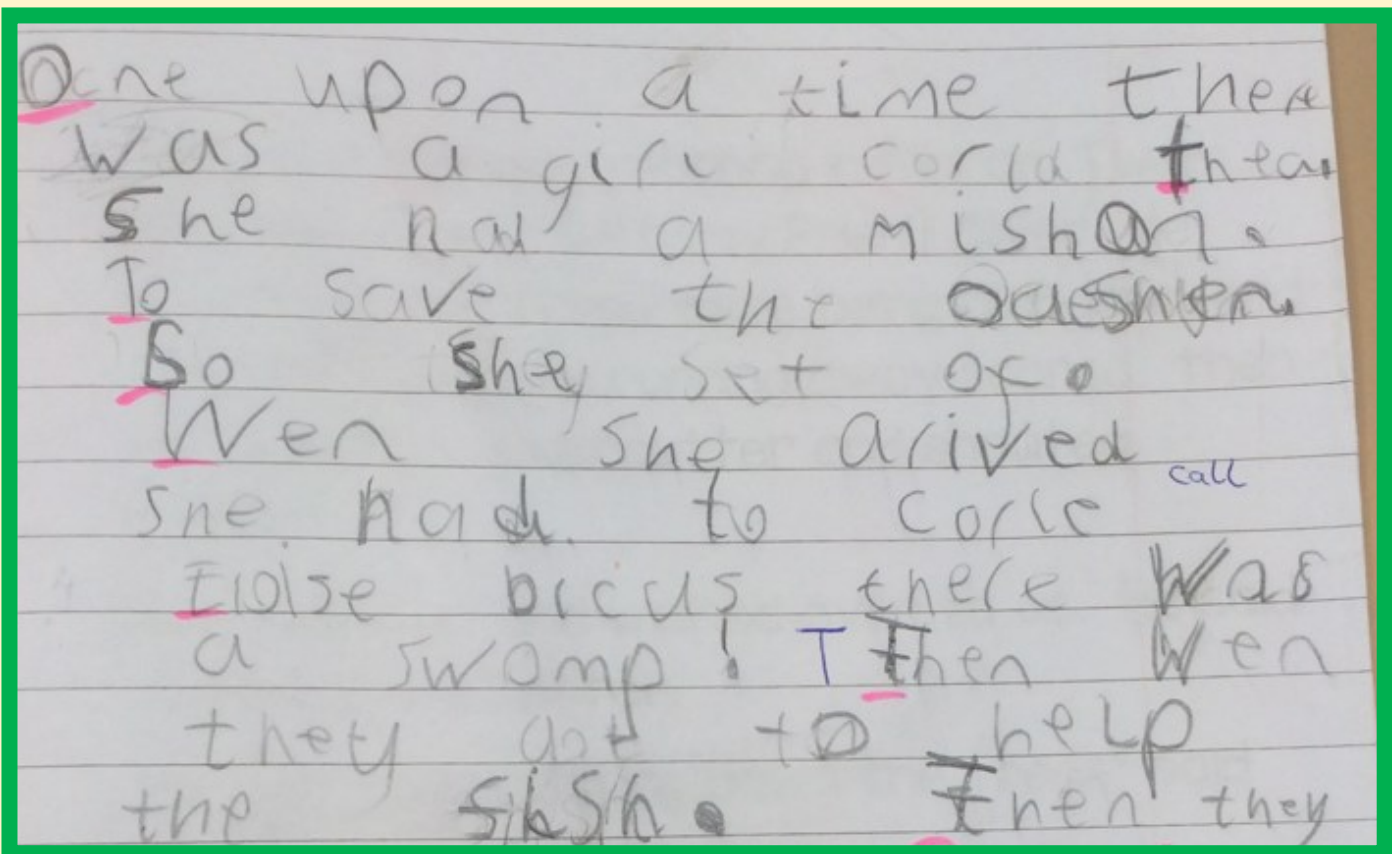 Ocne upon a time ther
was a girl corld thea
She had a mishon.
To save the
So she set of.
Wen she arived
call
she had to corle
Elolse bicus there was
a swomp! T Then Wen
they got to help
the fish. Then they